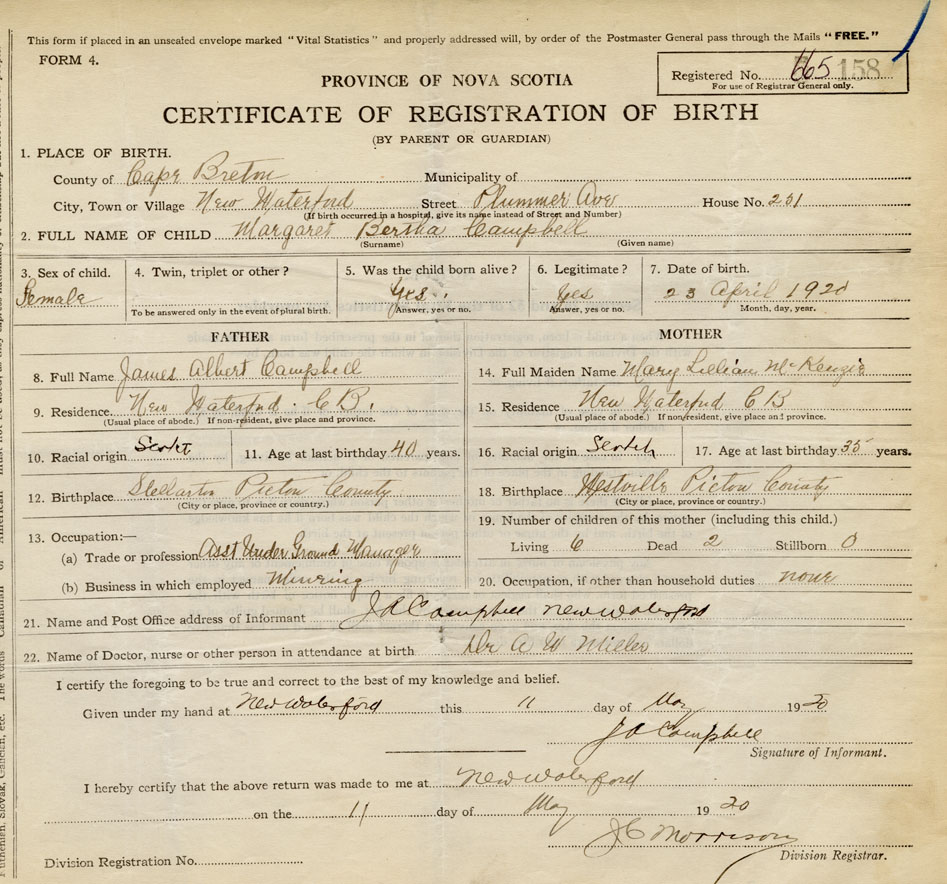 This form if placed in an unsealed envelope marked "Vital Statistics" and properly addressed will, by order of the Postmaster General pass through the Mails "FREE."
FORM 4.
Registered No. 665 158
For use of Registrar General only.
PROVINCE OF NOVA SCOTIA
CERTIFICATE OF REGISTRATION OF BIRTH
(BY PARENT OR GUARDIAN)
1. PLACE OF BIRTH.
County of Cape Breton Municipality of
City, Town or Village New Waterford Street Plummer Ave House No. 251
(If birth occurred in a hospital, give its name instead of Street and Number)
2. FULL NAME OF CHILD Margaret Bertha Campbell
(Surname) (Given name)
3. Sex of child. 4. Twin, triplet or other? 5. Was the child born alive? 6. Legitimate? 7. Date of birth.
Female Yes. Yes 23 April 1920
To be answered only in the event of plural birth. Answer, yes or no. Answer, yes or no. Month, day, year.
FATHER
8. Full Name James Albert Campbell
9. Residence. New Waterford. C B.
(Usual place of abode.) If non-resident, give place and province.
10. Racial origin Scotch 11. Age at last birthday 40 years.
12. Birthplace Stellarton Picton County
(City or place, province or country.)
13. Occupation:—
(a) Trade or profession Asst Under Ground Manager
(b) Business in which employed Minring
MOTHER
14. Full Maiden Name Mary Lillian McKenzie
15. Residence New Waterford C B
(Usual place of abode.) If non-resident, give place and province.
16. Racial origin Scotch 17. Age at last birthday 35 years.
18. Birthplace Westville Picton County
(City or place, province or country.)
19. Number of children of this mother (including this child.)
Living 6 Dead 2 Stillborn 0
20. Occupation, if other than household duties none
21. Name and Post Office address of Informant J A Campbell New Waterford
22. Name of Doctor, nurse or other person in attendance at birth Dr A W Miller
I certify the foregoing to be true and correct to the best of my knowledge and belief.
Given under my hand at New Waterford this 11 day of May 1920
J A Campbell
Signature of Informant.
I hereby certify that the above return was made to me at New Waterford
on the 11 day of May 1920
J C Morrison
Division Registrar.
Division Registration No.